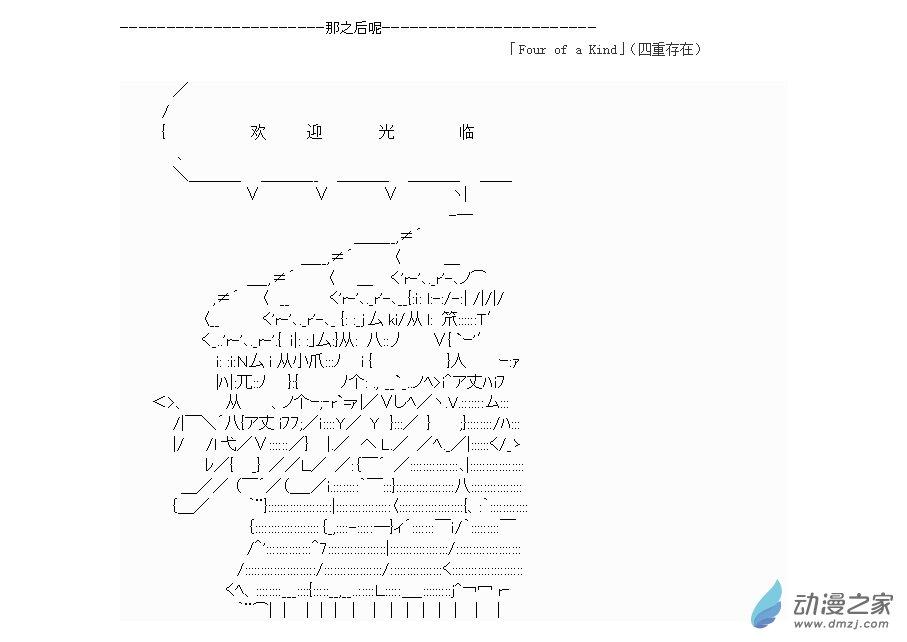 那之后呢
「Four of a Kind」（四重存在）
欢 迎 光 临
动漫之家
www.dmzj.com